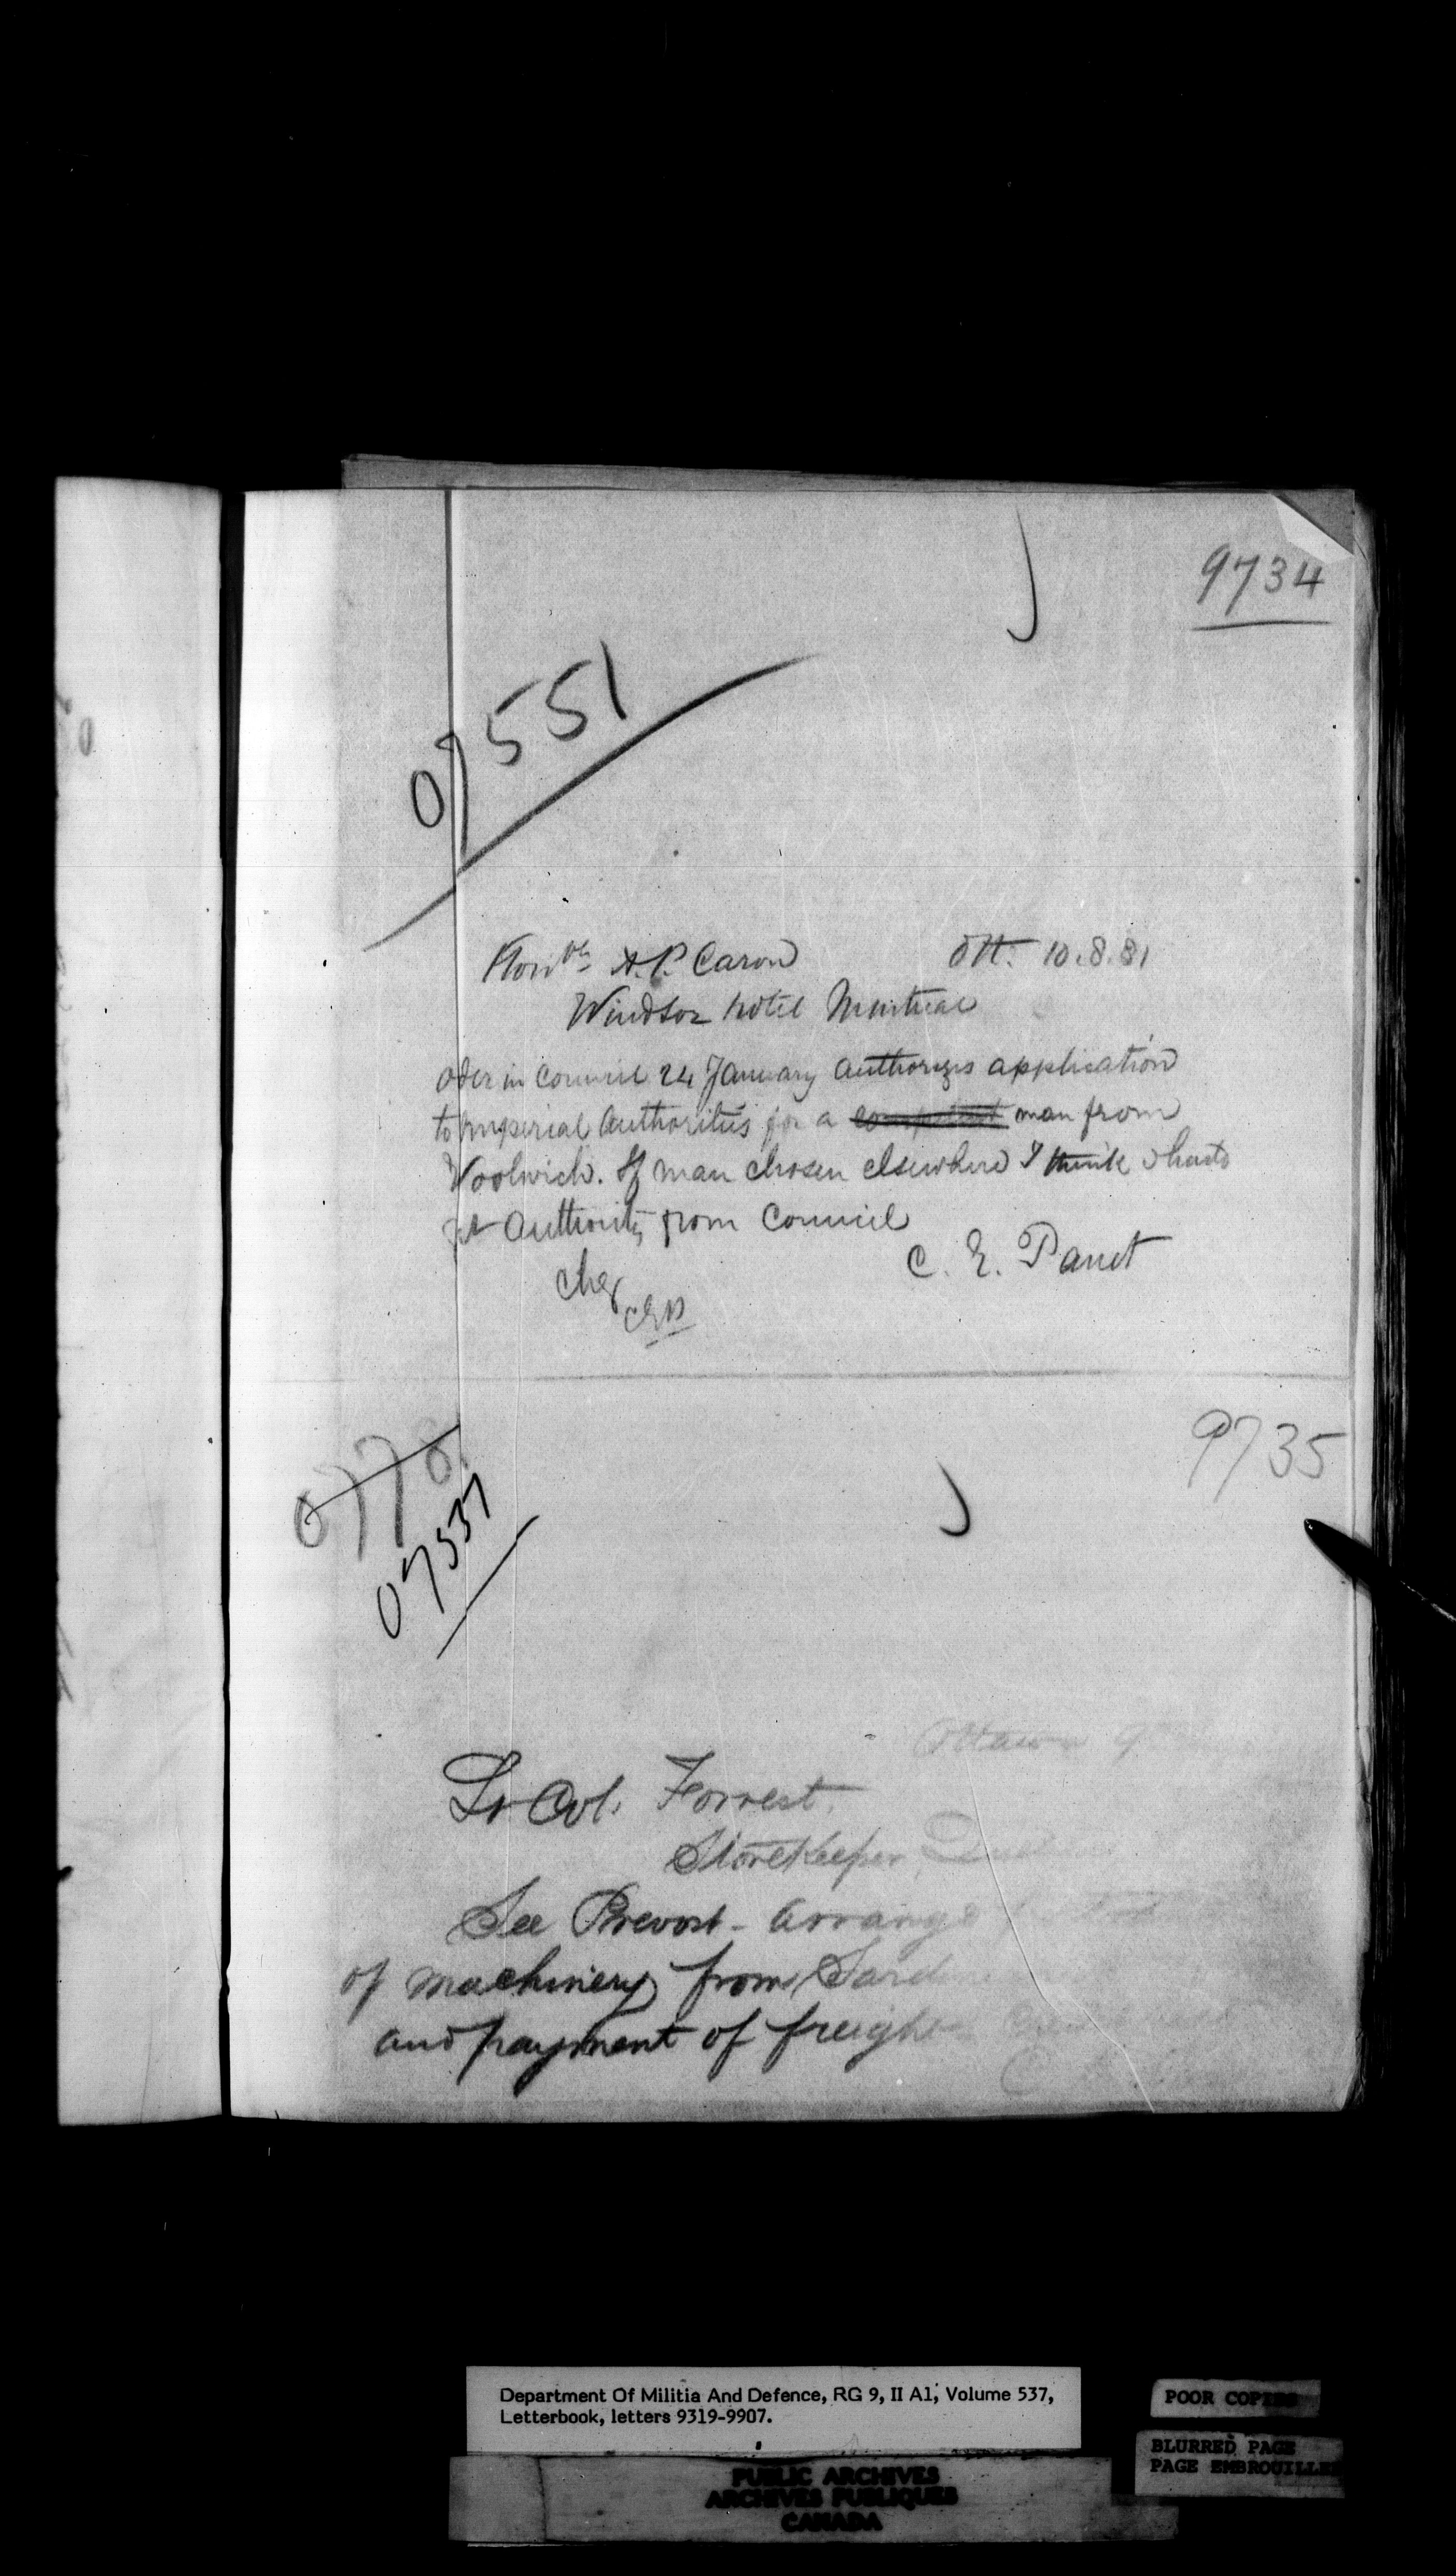 9734
07551
Honble A.P. Caron Ott. 10.8.81
Windsor hotel Montreal
Oder in Council 24 January authorizes application
to Imperial Authorities for a competent man from
Woolwich. If man chosen elsewhere I think
Authority from Council
C. E. Panet
Chg
CEP
9735
07537
Ottawa 9
Lt Col. Forrest.
Storekeeper
See Prevost - arrange
of machinery from
and payment of freight
Department Of Militia And Defence, RG 9, II A1, Volume 537,
Letterbook, letters 9319-9907.
POOR COPIES
BLURRED PAGE
PAGE EMBROUILLEE
PUBLIC ARCHIVES
ARCHIVES PUBLIQUES
CANADA